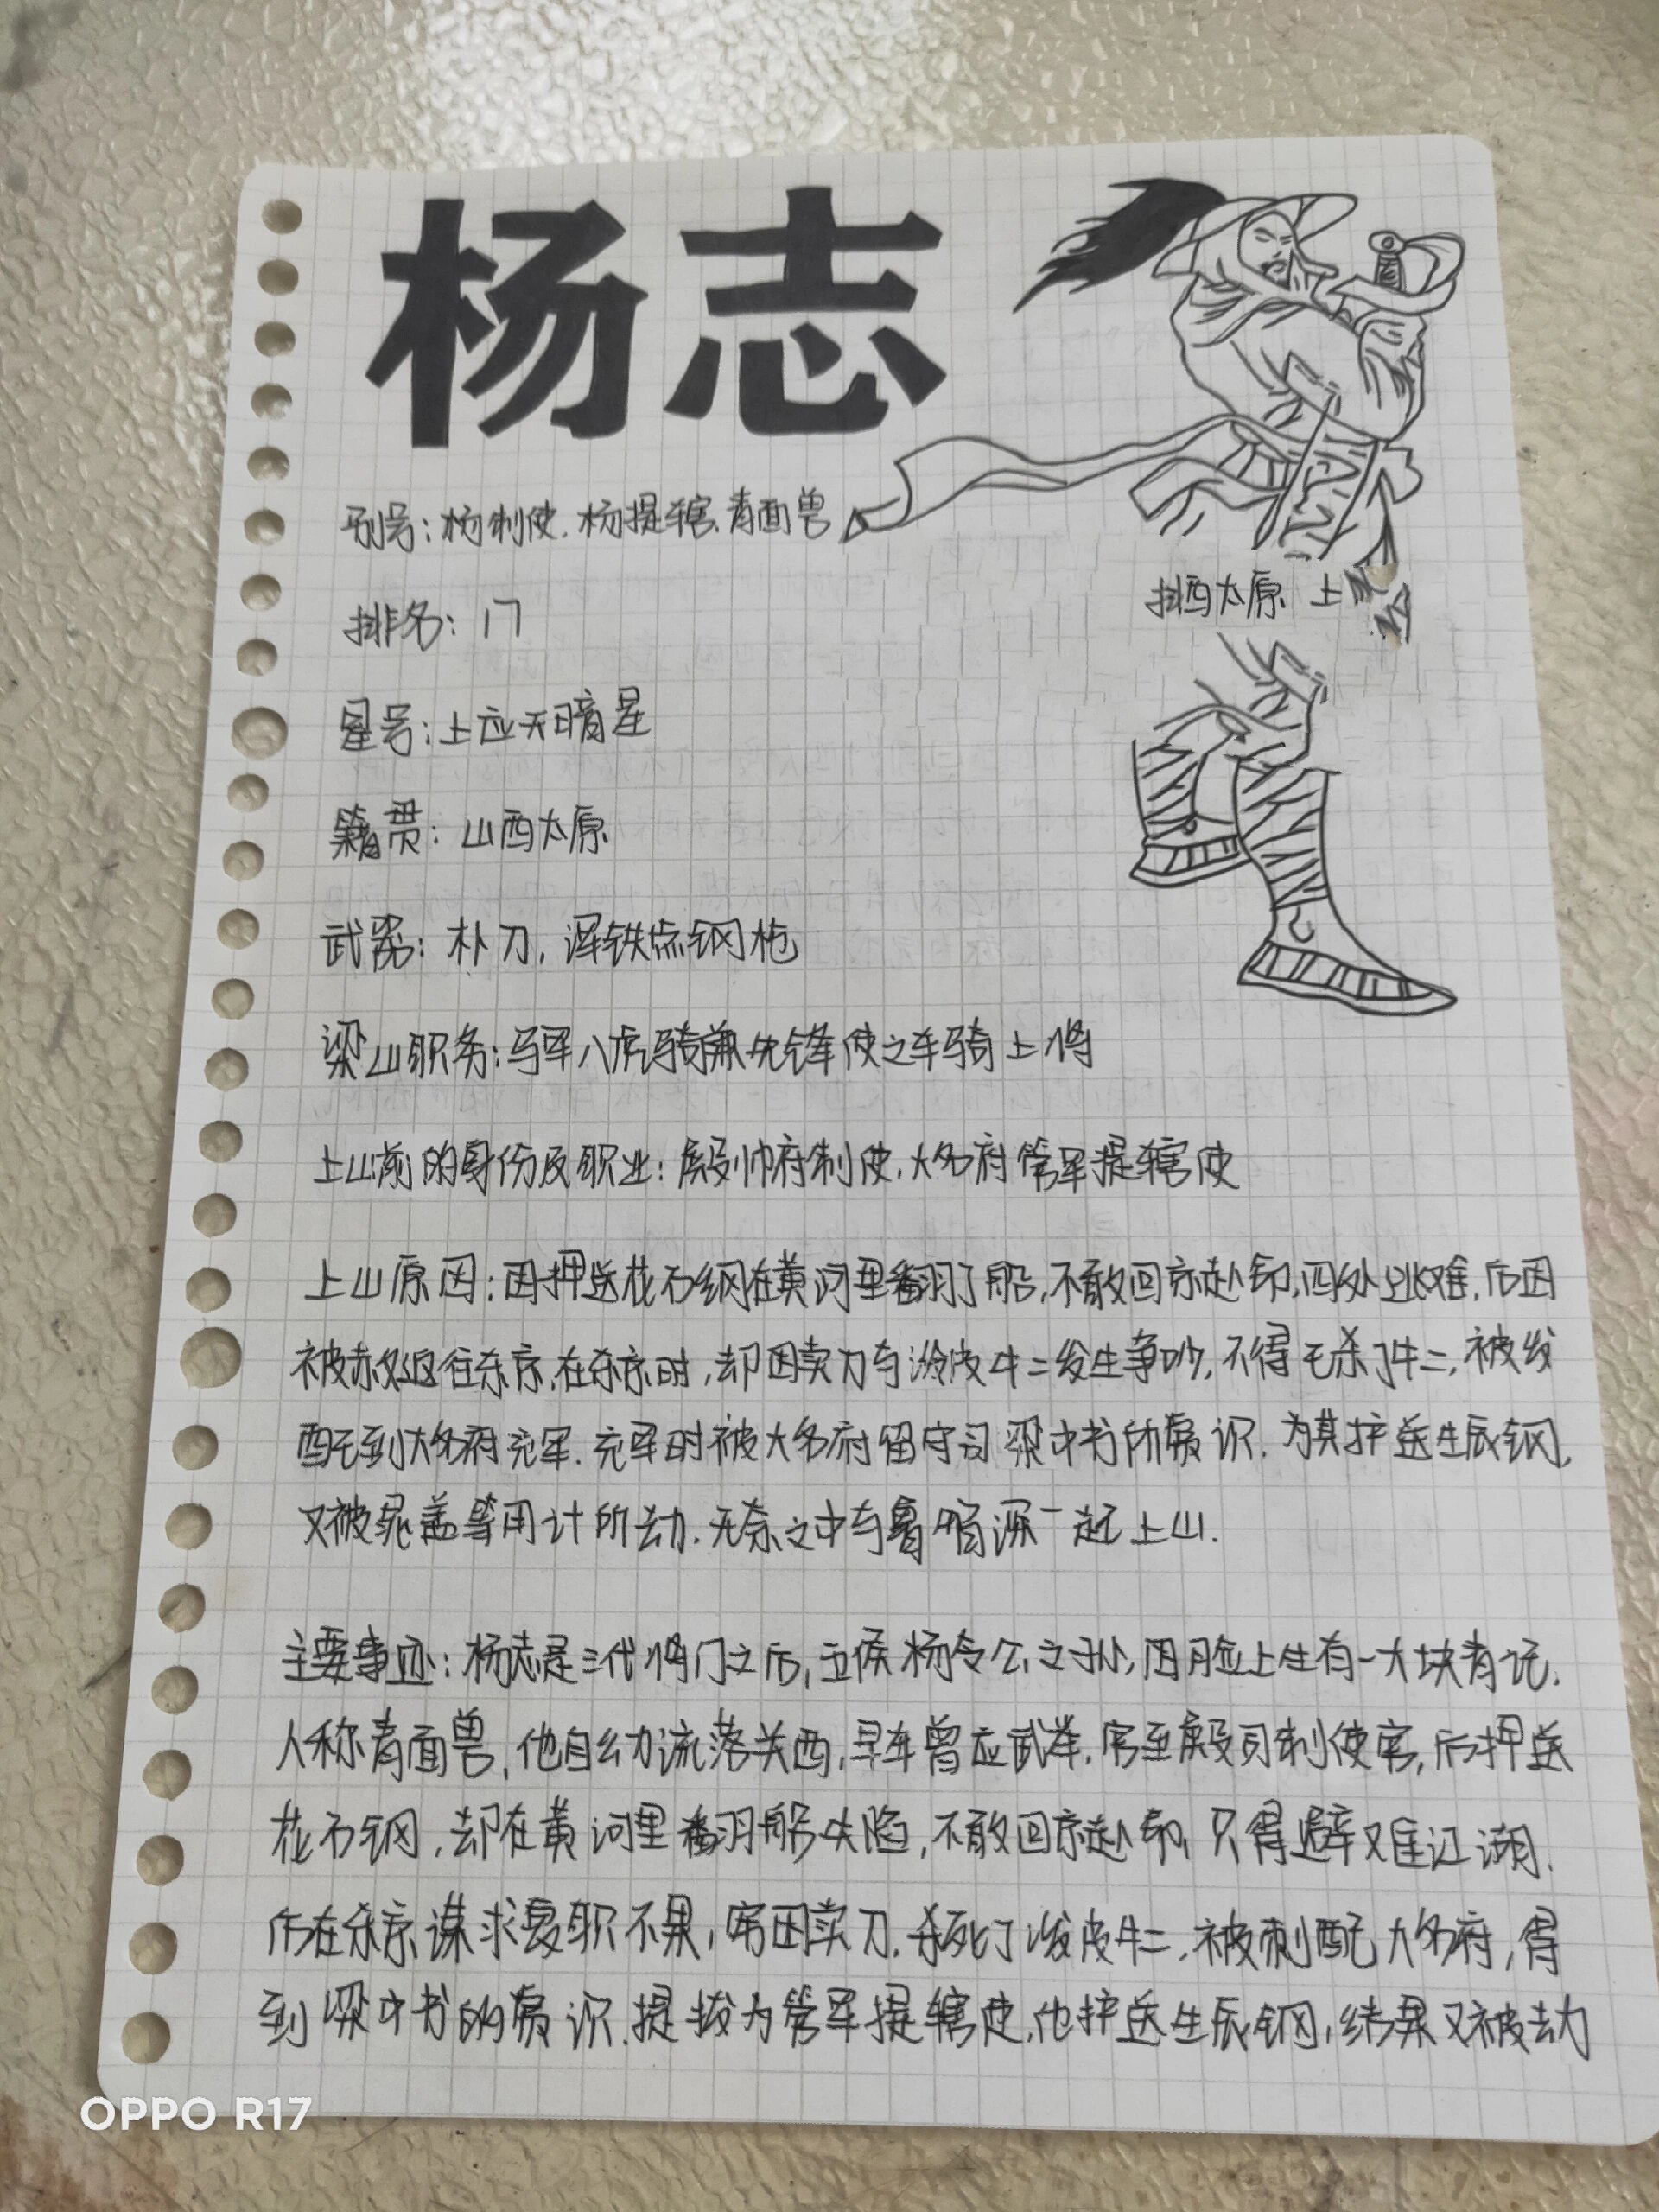 杨志
别号：杨制使.杨提辖.青面兽
排西太原 上
排名：17
星号：上应天暗星
籍贯：山西太原
武器：朴刀，浑铁点钢枪
梁山职务：马军八虎骑兼先锋使之车骑上将
上山前的身份及职业：殿帅府制使.大名府管军提辖使
上山原因：因押送花石纲在黄河里翻了船，不敢回京赴命，四处避难，后因
被赦返往东京，在东京时，却因卖刀与泼皮牛二发生争吵，不得已杀了牛二，被发
配到大名府充军.充军时被大名府留守司梁中书所赏识.为其护送生辰钢，
又被晁盖等用计所劫.无奈之中与鲁智深一起上山.
主要事迹：杨志是三代将门之后，五侯杨令公之孙，因脸上生有一大块青记.
人称青面兽，他自幼流落关西，早年曾应武举，官至殿司制使官，后押送
花石钢，却在黄河里翻船失陷，不敢回京赴命，只得避难江湖.
后在东京谋求复职不果，穷因卖刀.杀死了泼皮牛二，被刺配大名府，得
到梁中书的赏识.提拔为管军提辖使，他护送生辰钢，结果又被劫
OPPO R17